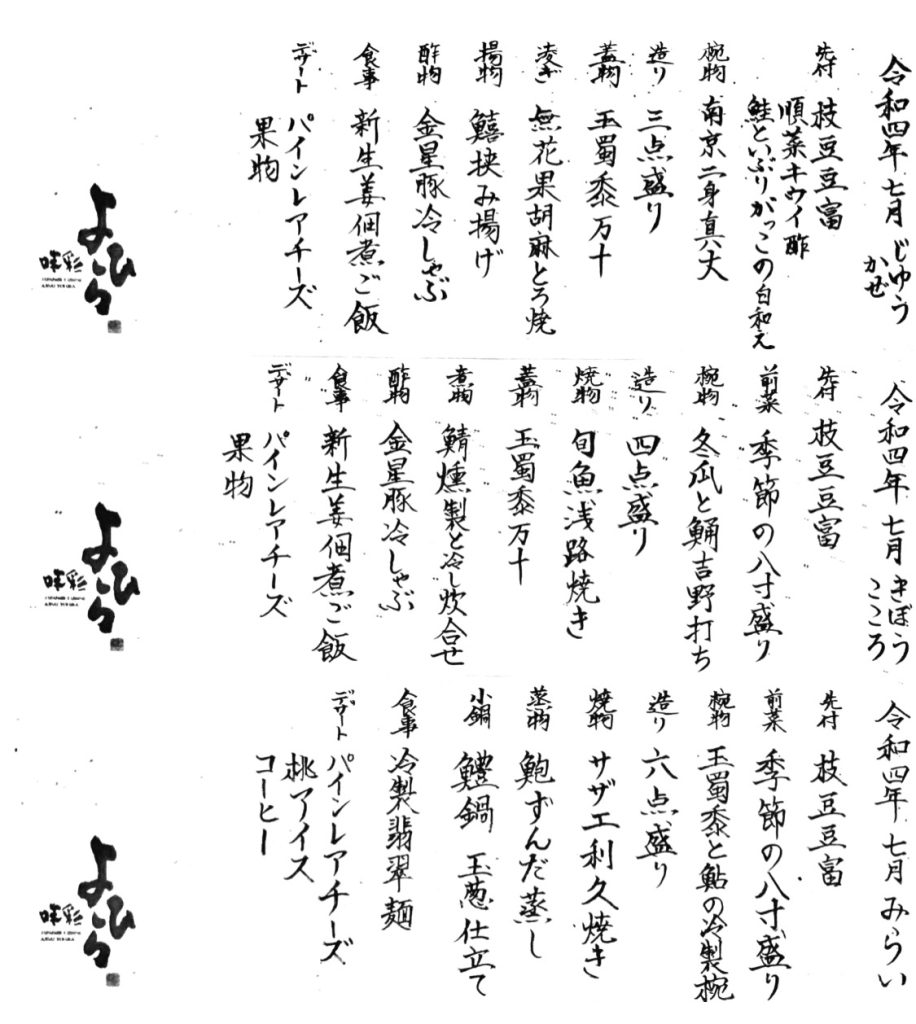 令和四年 七月 じゅう
かぜ
先付 枝豆豆富
順菜キウイ酢
鮭といぶりがっこの白和え
椀物 南京二身真丈
造り 三点盛り
蓋物 玉蜀黍万十
凌ぎ 無花果胡麻とろ焼
揚物 鱚挟み揚げ
酢物 金星豚冷しゃぶ
食事 新生姜佃煮ご飯
デザート パインレアチーズ
果物
味彩
よひら
令和四年 七月 きぼう
こころ
先付 枝豆豆富
前菜 季節の八寸盛り
椀物 冬瓜と鯒吉野打ち
造り 四点盛り
焼物 旬魚浅路焼き
蓋物 玉蜀黍万十
煮物 鯖燻製と冷し炊合せ
酢物 金星豚冷しゃぶ
食事 新生姜佃煮ご飯
デザート パインレアチーズ
果物
味彩
よひら
令和四年 七月 みらい
先付 枝豆豆富
前菜 季節の八寸盛り
椀物 玉蜀黍と鮎の冷製椀
造り 六点盛り
焼物 サザエ利久焼き
蒸物 鮑ずんだ蒸し
小鍋 鱧鍋 玉葱仕立て
食事 冷製翡翠麺
デザート パインレアチーズ
桃アイス
コーヒー
味彩
よひら